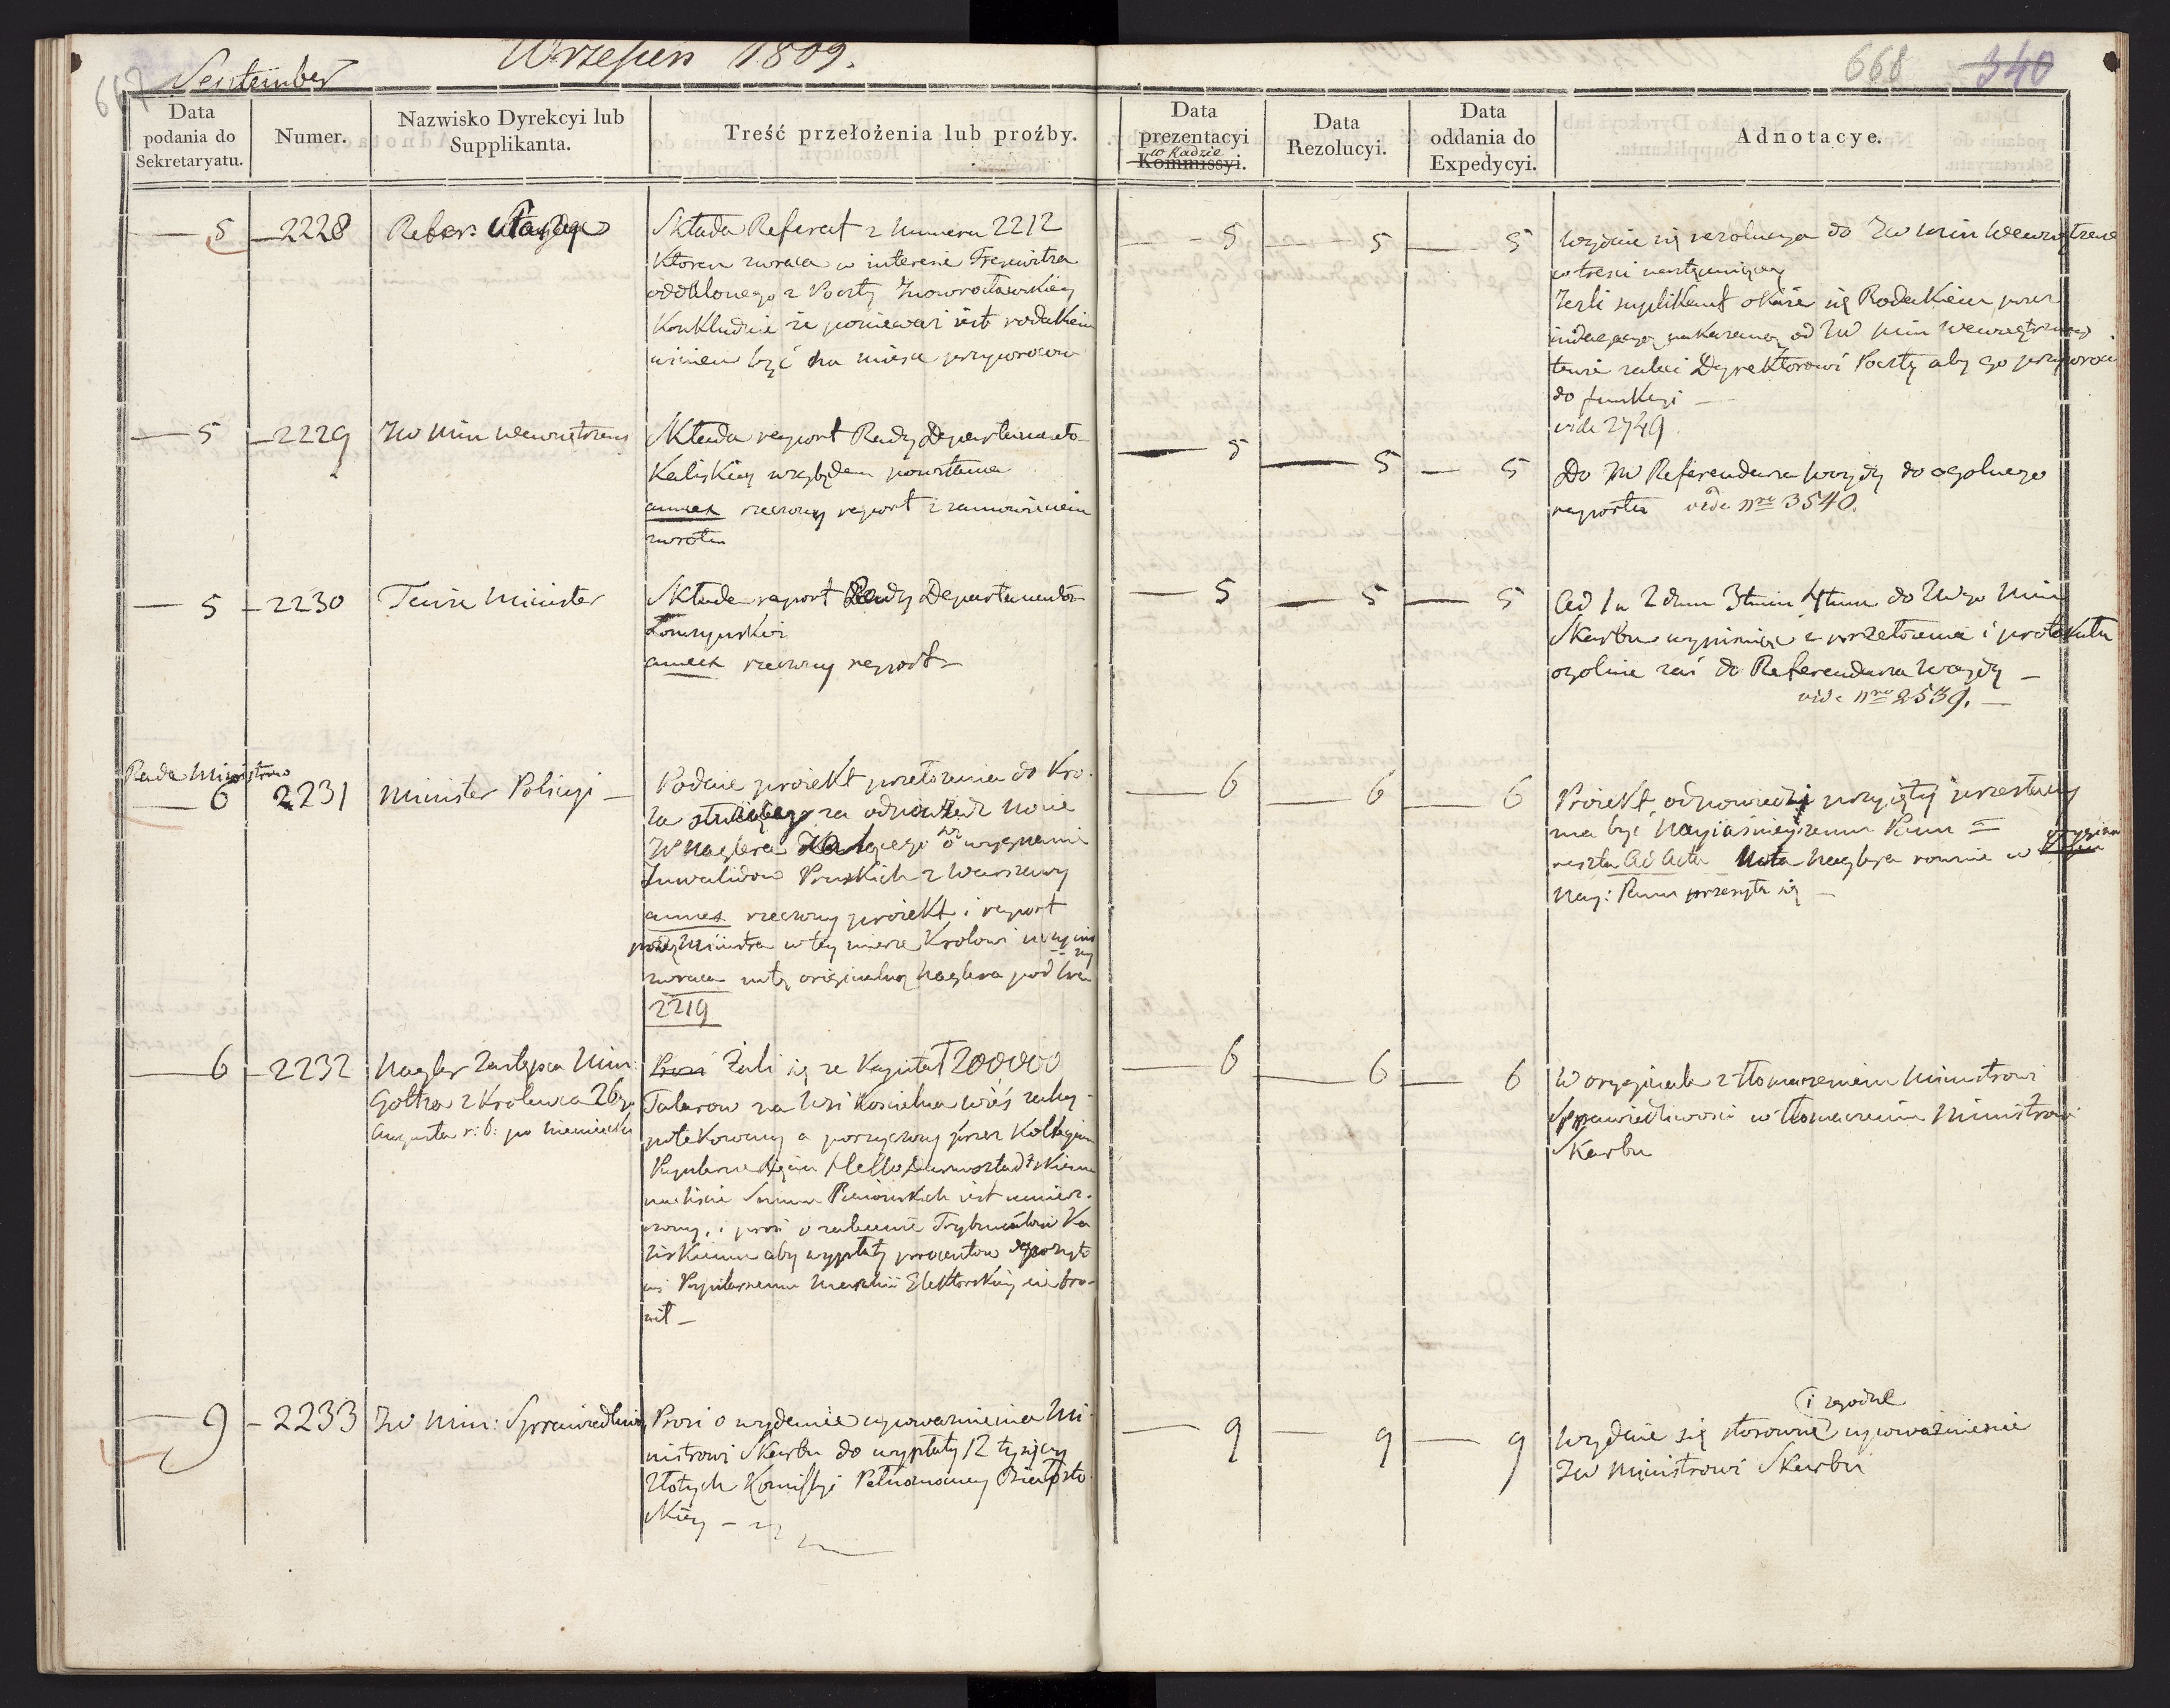 Wrzesień 1809.
667 September
668 340
Data podania do Sekretaryatu.
Numer.
Nazwisko Dyrekcyi lub Supplikanta.
Treść przełożenia lub proźby.
Data prezentacyi w Radzie Kommissyi.
Data Rezolucyi.
Data oddania do Expedycyi.
Adnotacye.
— 5 — 2228 Refer:
Składa Referat z Numeru 2212
ktoren zwraca w interesie
oddalonego z Poczty Inowrocławskiey
Konkluduie że ponieważ iest rodakiem
winien być na mieysce przywrocon
— 5 — 5 — 5
Wydaie się rezolucya do JW Min Wewnętrzne
w treści następuiącey
Jeżli suplikant okaże się Rodakiem przez
od JW Min Wewnętrznego
tenże zaleci Dyrektorowi Poczty aby go przywrocił
do funkcyi —
vide 2749
— 5 — 2229 JW Min Wewnętrzny
Składa raport Rady Departamento
Kaliskiey względem powstania
annex rzeczony raport z zamowieniem
zwrotu
— 5 — 5 — 5
Do JW Referendarza Woydy do ogolnego
raportu vide nro 3540.
— 5 — 2230 Tenże Minister
Składa raport Rady Departamento
Łomżynskiei
annex rzeczony raport —
— 5 — 5 — 5
Ad 1m 2dum 3tium 4tum do JWgo Min
Skarbu wypisuiąc z przełożenia i protokułu
ogolnie zaś do Referendarza Woydy —
vide nro 2539. —
Rada Ministrow
— 6 2231 Minister Policyi —
Podaie proiekt przełożenia do Kro-
la służącego za odpowiedź Nocie
W Naglera o wygnanie
Inwalidow Pruskich z Warszawy
annex rzeczony proiekt i raport
Ministra w tey mierze Krolowi
zwraca notę originalną Naglera pod Nrem
2219
— 6 — 6 — 6
Proiekt odpowiedzi przyięty przesłany
ma być Nayiaśnieyszemu Panu =
reszta Ad Acta Nota Naglera rownie w
Nay: Panu przesyła się —
— 6 — 2232 Nagler Zastępca Min:
Goltza z Krolewca 26go
Augusta r: b: po Niemiecku
Prosi Żali się że Kapitał 200000
Talarow na Wsi Kościelna wieś zahy-
potekowany a pożyczony przez Kollegium
Pupilarne Xięciu Hesko Darmsztadzkiemu
na liście Summ Baiońskich iest umiesz-
czony, i prosi o zalecenie Trybunałowi Ka
liskiemu aby wypłaty procentow depozyto
wi Pupilarnemu Marchii Elektorskiey nie bro-
nił —
— 6 — 6 — 6
W oryginale z tłomaczeniem Ministrowi
Sprawiedliwości w tłomaczeniu Ministrowi
Skarbu
— 9 — 2233 JW Min: Sprawiedliwoś
Prosi o wydanie upoważnienia Mi-
nistrowi Skarbu do wypłaty 12 tysięcy
Złotych Komissyi Pełnomocney
skiey —
— 9 — 9 — 9
i zgodne
Wydaie się stosowne upoważnienie
JW Ministrowi Skarbu